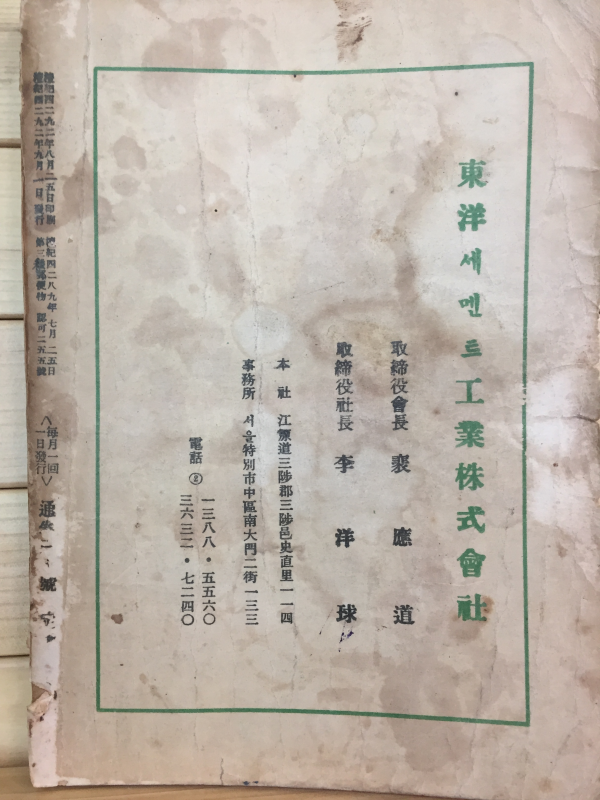 東洋세멘트工業株式會社
取締役會長 裵應道
取締役社長 李洋球
本社 江原道三陟郡三陟邑史直里一一四
事務所 서울特別市中區南大門二街一三三
電話 ② 一三八八・五五六〇
三六三二・七二四〇
檀紀四二九二年八月二五日印刷 檀紀四二八九年七月二五日
檀紀四二九二年九月一日發行 第三種郵便物 認可二五五號
〈每月一回一日發行〉 通卷 號